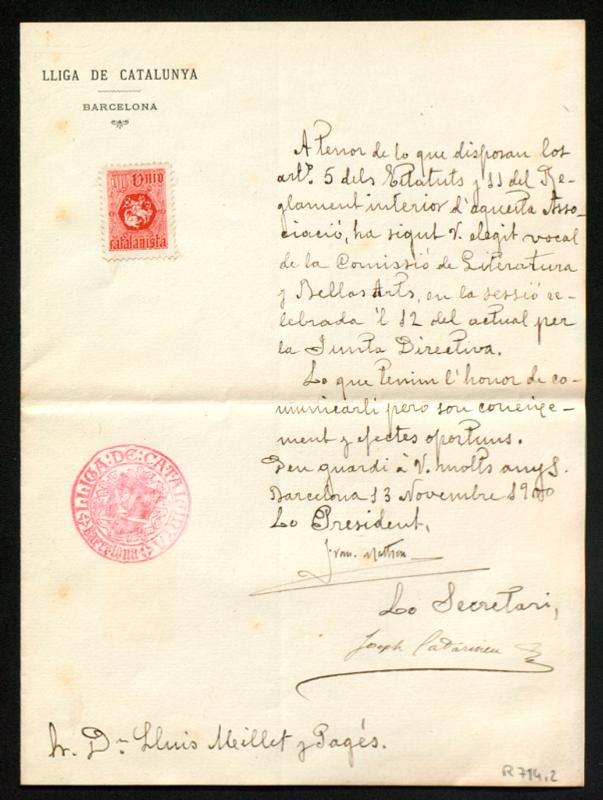 LLIGA DE CATALUNYA
BARCELONA
Unió
catalanista
A tenor de lo que disposan los
artˢ. 5 dels Estatuts y 11 del Re-
glament interior d'aquesta Asso-
ciació, ha sigut V. elegit vocal
de la Comissió de Literatura
y Bellas Arts, en la sessió ce-
lebrada 'l 12 del actual per
la Junta Directiva.
Lo que tenim l'honor de co-
municarli pero son coneixe-
ment y efectes oportuns.
Deu guardi à V. molts anys.
Barcelona 13 Novembre 1900
Lo President,
Lo Secretari,
Joseph Catarineu
LLIGA: DE: CATALUNYA
Barcelona
Sr. Dⁿ Lluis Millet y Pagés.
R 714,2